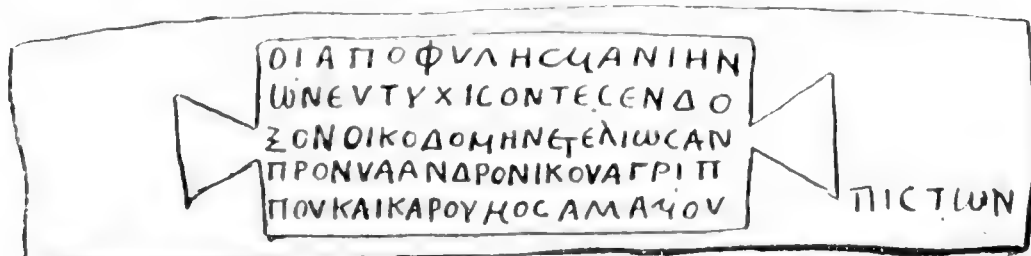 ΟΙΑΠΟΦΥΛΗϹΜΑΝΙΗΝ
ΩΝΕΥΤΥΧΙϹΟΝΤΕϹΕΝΔΟ
ΞΟΝΟΙΚΟΔΟΜΗΝΕΤΕΛΙΩϹΑΝ
ΠΡΟΝΥΑΑΝΔΡΟΝΙΚΟΥΑΓΡΙΠ
ΠΟΥΚΑΙΚΑΡΟΥΜΟϹΑΜΑΜΟΥ
ΠΙϹΤΙΩΝ